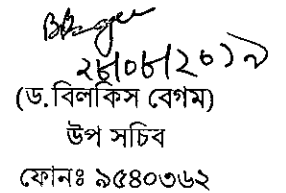 ২৮|০৮|২০১৯
(ড. বিলকিস বেগম)
উপ সচিব
ফোনঃ ৯৫৪০৩৬২